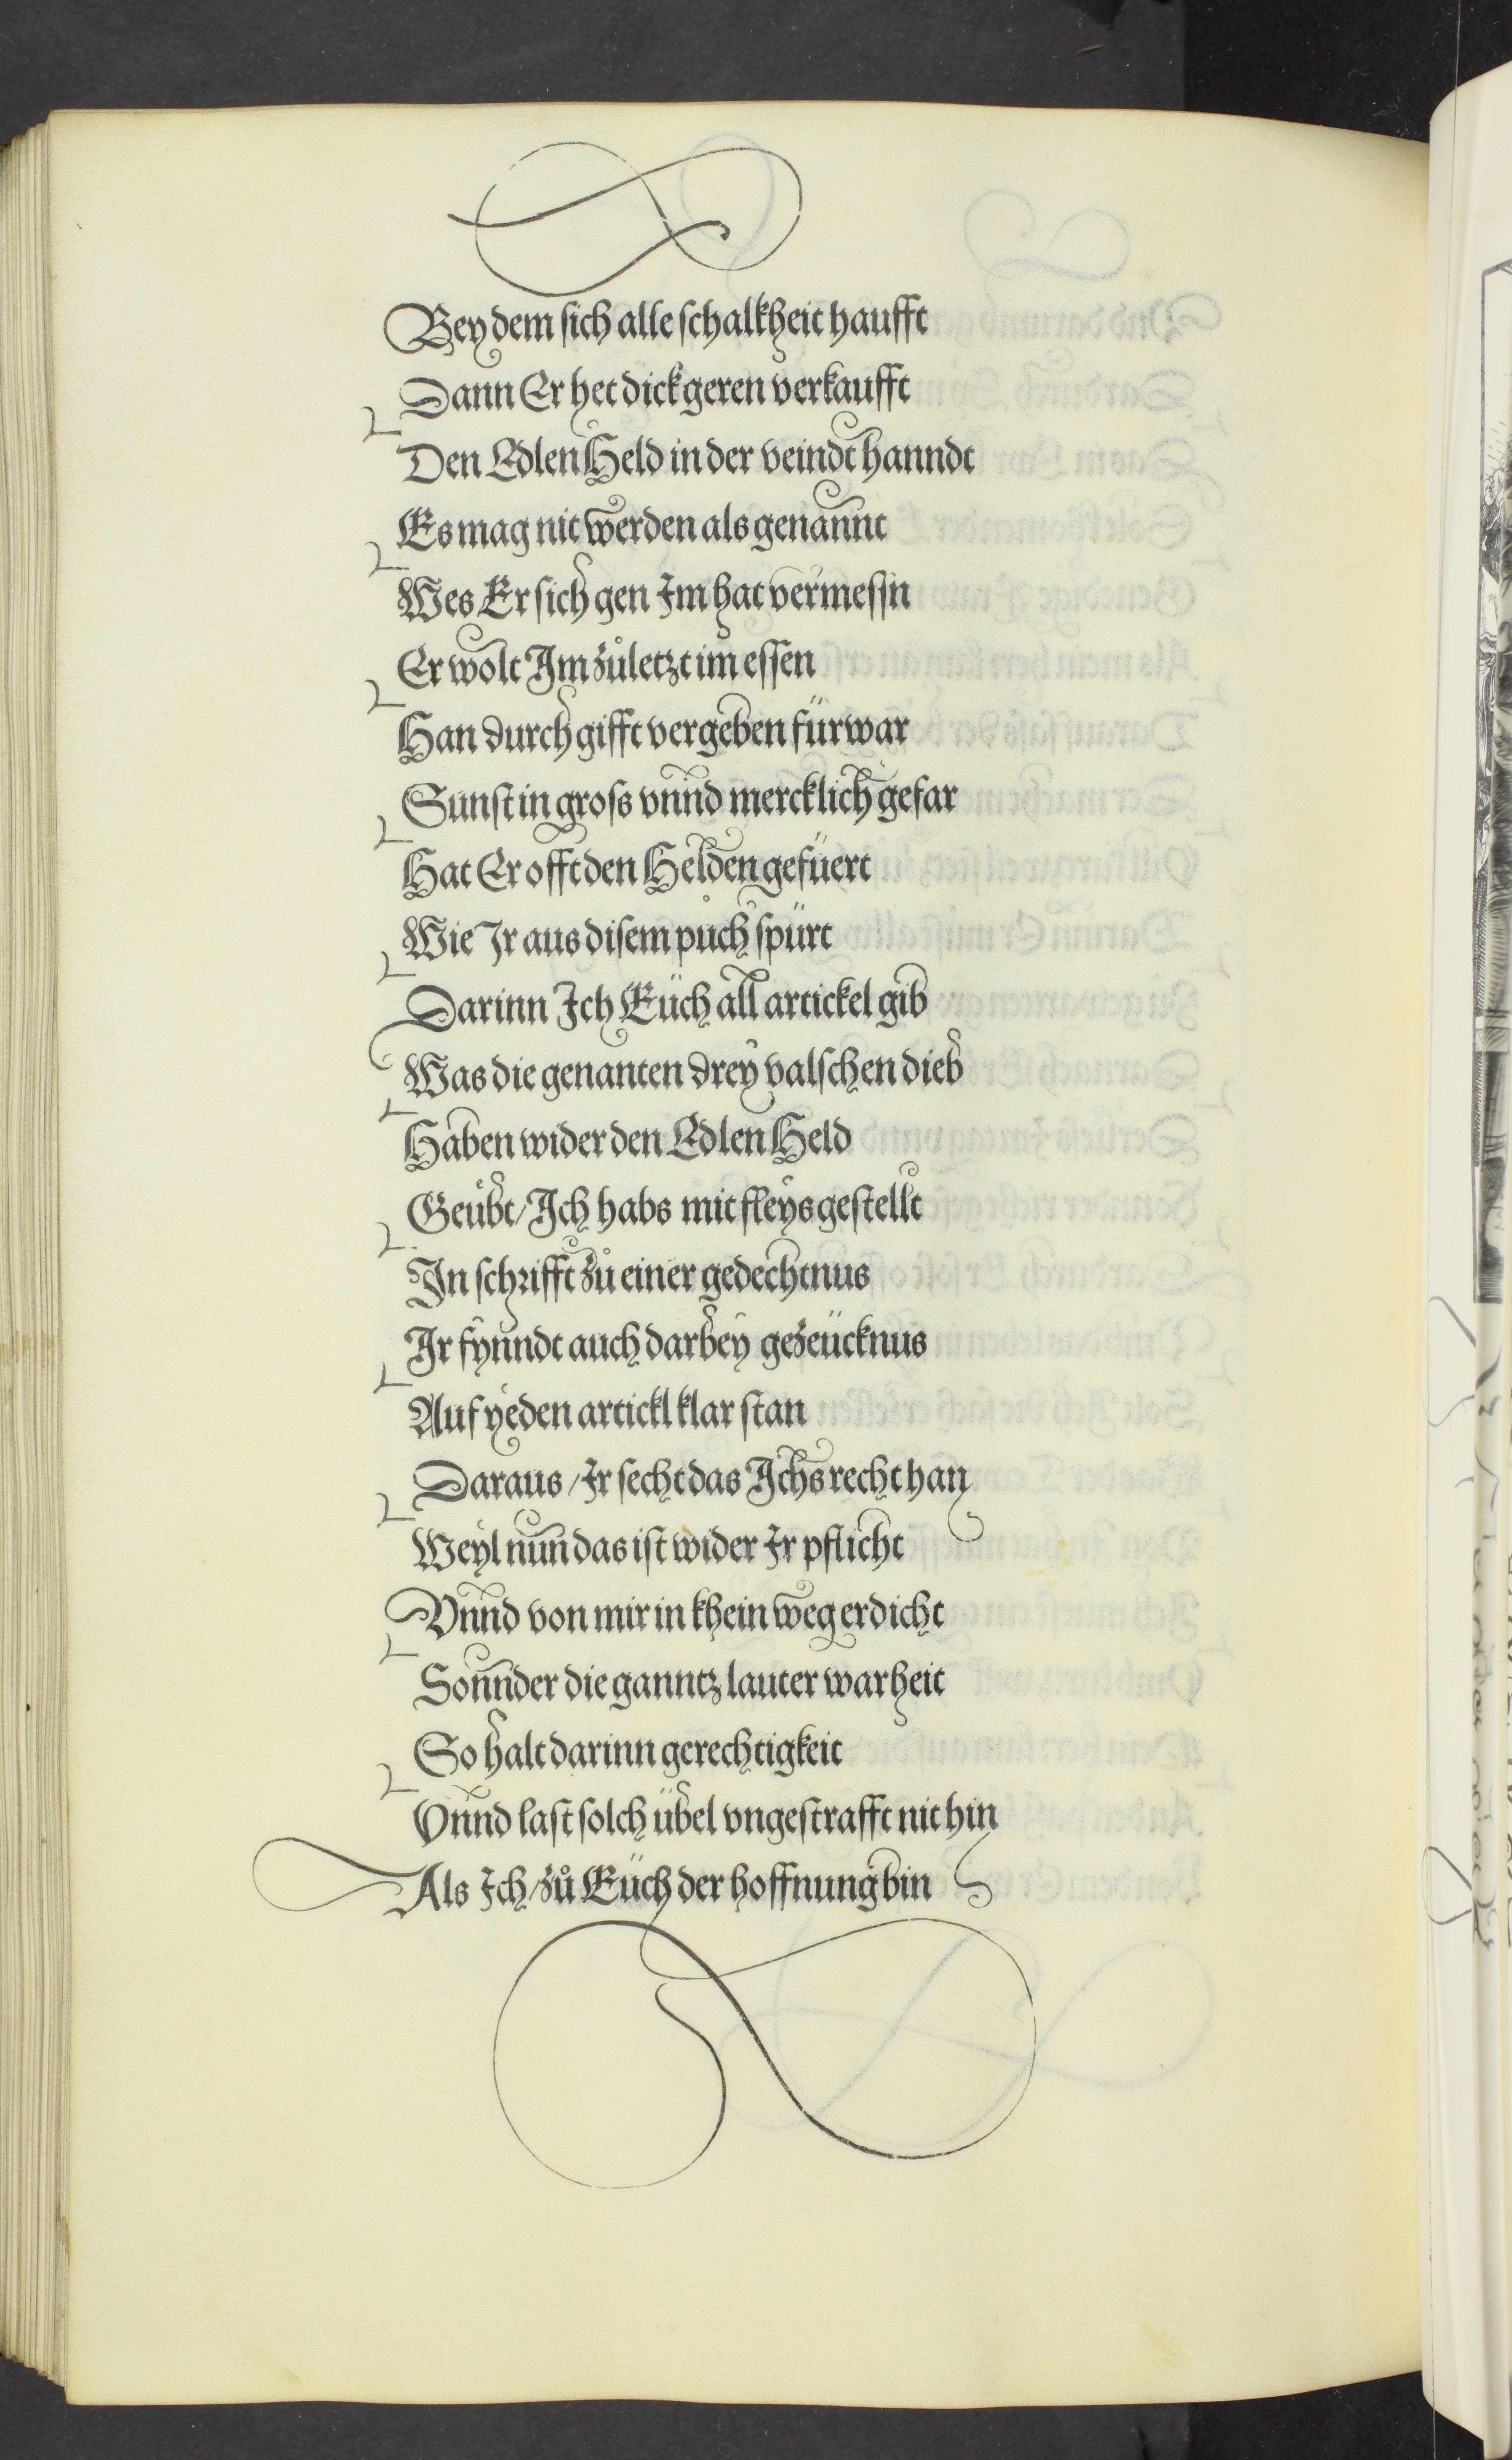 Bey dem sich alle schalkheit haufft
Dann Er het dick geren verkaufft
Den Edlen Held in der veindt hanndt
Es mag nit werden als genannt
Wes Er sich gen Im hat vermessn
Er wolt Im zůletzt im essen
Han durch gifft vergeben fürwar
Sunst in gross vnnd mercklich gefar
Hat Er offt den Helden gefüert
Wie Ir aus disem půch spürt
Darinn Ich Eüch all artickel gib
Was die genanten drey valschen dieb
Haben wider den Edlen Held
Geübt/Ich habs mit fleys gestellt
In schrifft zů einer gedechtnus
Ir fynndt auch darbey gezeücknus
Auf yeden artickl klar stan
Daraus/Ir secht das Ichs recht han
Weyl nun das ist wider Ir pflicht
Vnnd von mir in khein weg erdicht
Sonnder die ganntz lauter warheit
So halt darinn gerechtigkeit
Vnnd last solch übel vngestrafft nit hin
Als Ich/zů Eüch der hoffnung bin